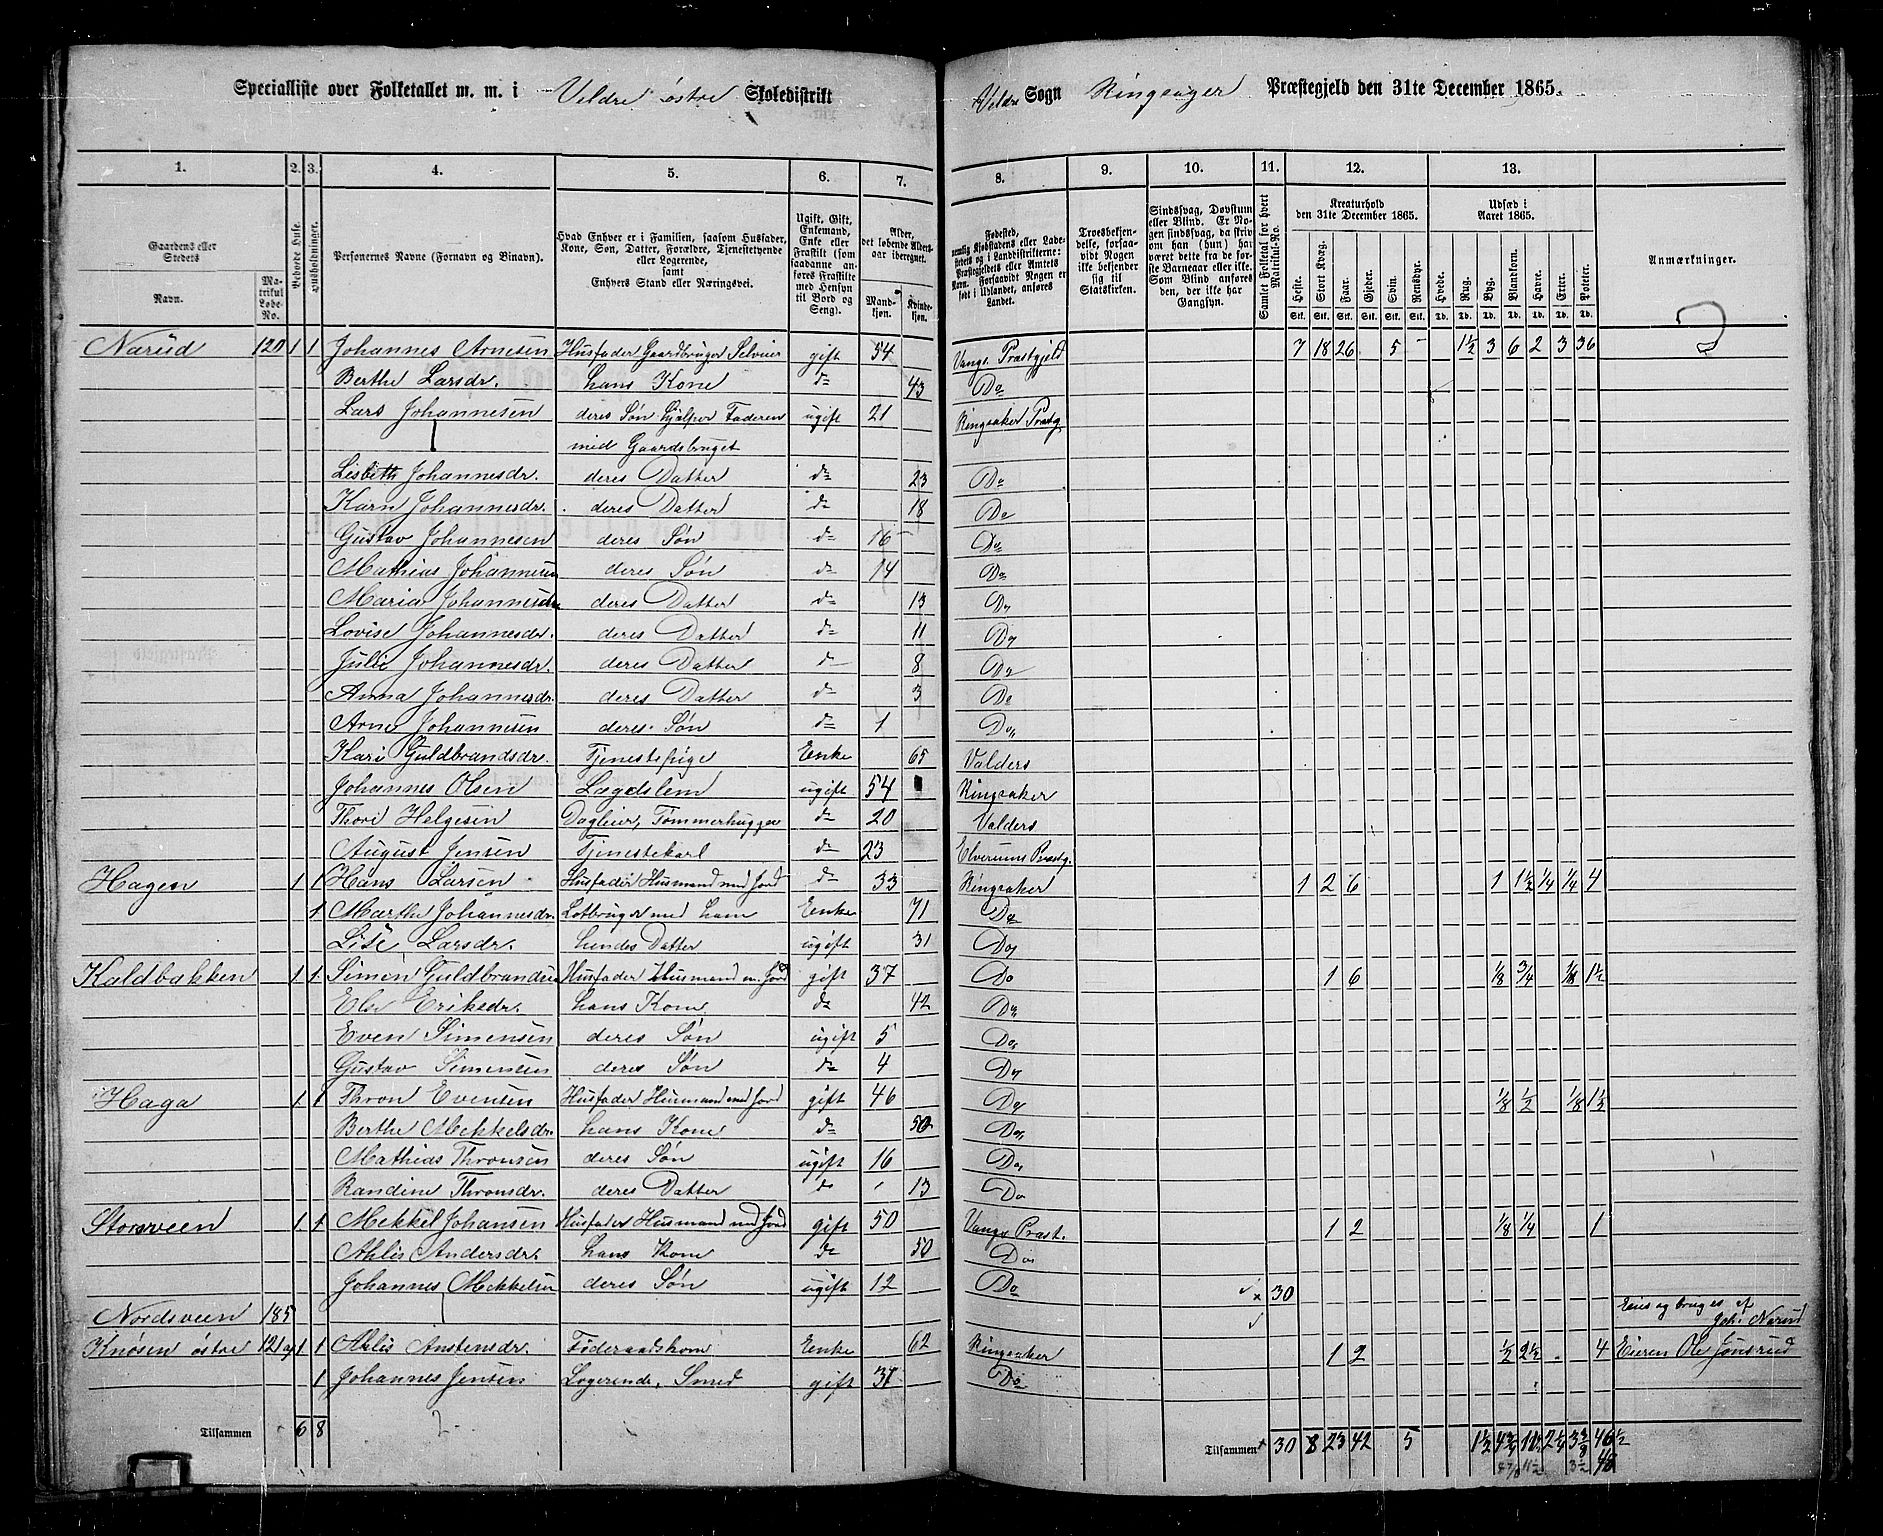 Specialliste over Folketallet m. m. i Veldre østre Skoledistrikt
Veldre Sogn Ringsager Præstegjeld den 31te December 1865.
1. 2. 3. 4. 5. 6. 7. 8. 9. 10. 11. 12. 13.
Gaardens eller Stedets
Navn.
Matrikul Løbe-No.
Beboede Huse.
Husholdninger.
Personernes Navne (Fornavn og Binavn).
Hvad Enhver er i Familien, saasom Husfader, Kone, Søn, Datter, Forældre, Tjenestetyende eller Logerende, samt Enhvers Stand eller Næringsvei.
Ugift, Gift, Enkemand, Enke eller Fraskilt (som saadanne anføres Fraskilte med Hensyn til Bord og Seng).
Alder, det løbende Aldersaar iberegnet.
Mandkjøn. Kvindekjøn.
Fødested, nemlig Kjøbstadens eller Ladestedets og i Landdistrikterne: Præstegjeldets eller Amtets Navn. Forsaavidt Nogen er født i Udlandet, anføres Landet.
Troesbekjendelse, forsaavidt Nogen ikke bekjender sig til Statskirken.
Sindssvag, Døvstum eller Blind. Er Nogen sindssvag, da skrives om han (hun) har været dette fra de første Barneaar eller ikke. Som Blind anføres den, der ikke har Gangsyn.
Samlet Folketal for hvert Matrikul-No.
Kreaturhold den 31te December 1865.
Heste. Stort Kvæg. Faar. Gjeder. Svin. Rensdyr.
Udsæd i Aaret 1865.
Hvede. Rug. Byg. Blandkorn. Havre. Erter. Poteter.
Anmærkninger.
Narud 120 1 1 Johannes Arnesen Husfader Gaardbruger Selveier gift 54 Vangs Præstgjeld 7 18 26 5 1½ 3 6 2 3 36
Berthe Larsdr. hans Kone do 43 Do
Lars Johannesen deres Søn hjælper Faderen ugift 21 Ringsaker Præstg
med Gaardsbruget
Lisbeth Johannesdr. deres Datter do 23 Do
Karn Johannesdr. deres Datter do 18 Do
Gustav Johannesen deres Søn do 16 Do
Mathias Johannesen deres Søn do 14 Do
Maria Johannesdr deres Datter do 13 Do
Lovise Johannesdr. deres Datter do 11 Do
Julie Johannesdr. deres Datter d 8 Do
Anna Johannesdr. deres Datter do 3 Do
Arne Johannesen deres Søn do 1 Do
Kari Guldbrandsdr. Tjenestepige Enke 65 Valders
Johannes Olsen Lægdslem ugift 54 Ringsaker
Thore Helgesen Dagleier, Tømmerhugger do 20 Valders
August Jensen Tjenestekarl do 23 Elverums Præstg.
Hagen 1 1 Hans Larsen Husfader Husmand med Jord do 33 Ringsaker 1 2 6 1 1½ ¼ ¼ 4
1 Marthe Johannesdr. Lotbruger med ham Enke 71 Do
Lise Larsdr. hendes Datter ugift 31 Do
Kaldbakken 1 1 Simen Guldbrandsen Husfader Husmand m. Jord gift 37 Do 1 6 ⅛ ¾ 1½
Else Eriksdr. hans Kone do 42 Do
Even Simensen deres Søn ugift 5 Do
Gustav Simensen deres Søn do 4 Do
Haga 1 1 Thron Evensen Husfader Husmand med Jord gift 46 Do ⅛ ½ ⅛ 1½
Berthe Mekkelsdr. hans Kone do 50 Do
Mathias Thronsen deres Søn ugift 16 Do
Randine Thronsdr. deres Datter do 13 Do
Storsveen 1 1 Mekkel Johansen Husfader Husmand med Jord gift 50 Vangs Præst. 1 2 ⅛ ¼ 1
Ahlis Andersdr. hans Kone do 50 Do
Johannes Mekkelsen deres Søn ugift 12 Do 30
Nordsveen 185 Eies og bruges af Joh: Narud
Knøsen østre 121 1 1 Ahlis Anstensdr. Føderaadskone Enke 62 Ringsaker 1 2 ½ 2½ 4 Eieren Ole Jønsrud
1 Johannes Jensen Logerende, Smed gift 37 Do
Tilsammen 6 8 2
Tilsammen 30 8 23 42 5 1½ 2¼ 46½